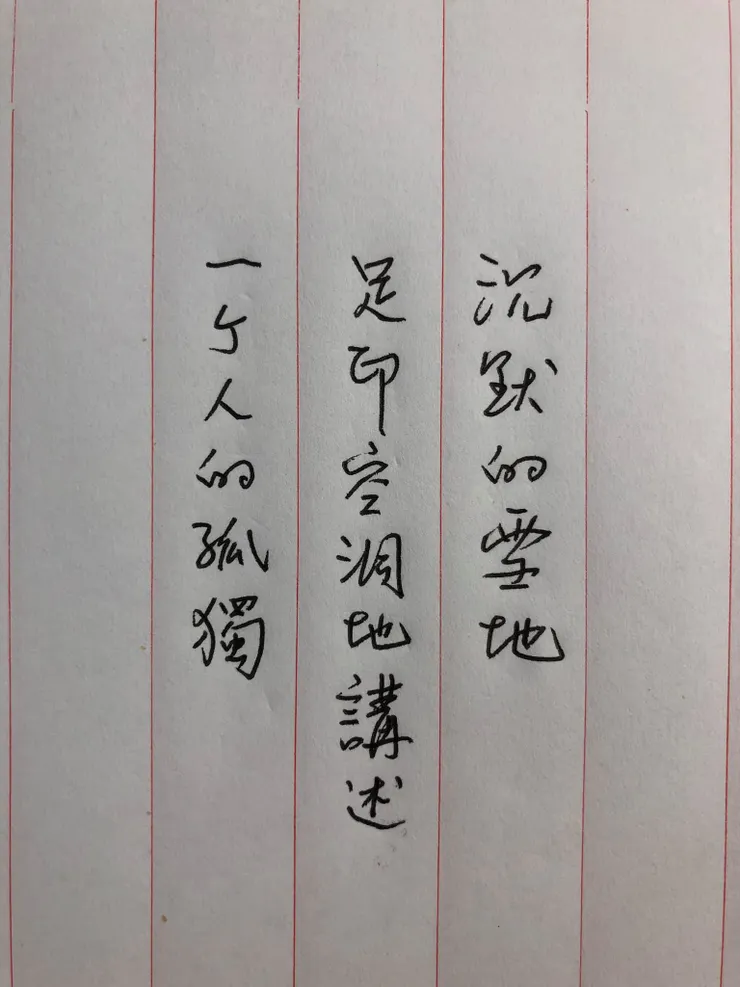 沉默的雪地
足印空洞地講述
一个人的孤獨